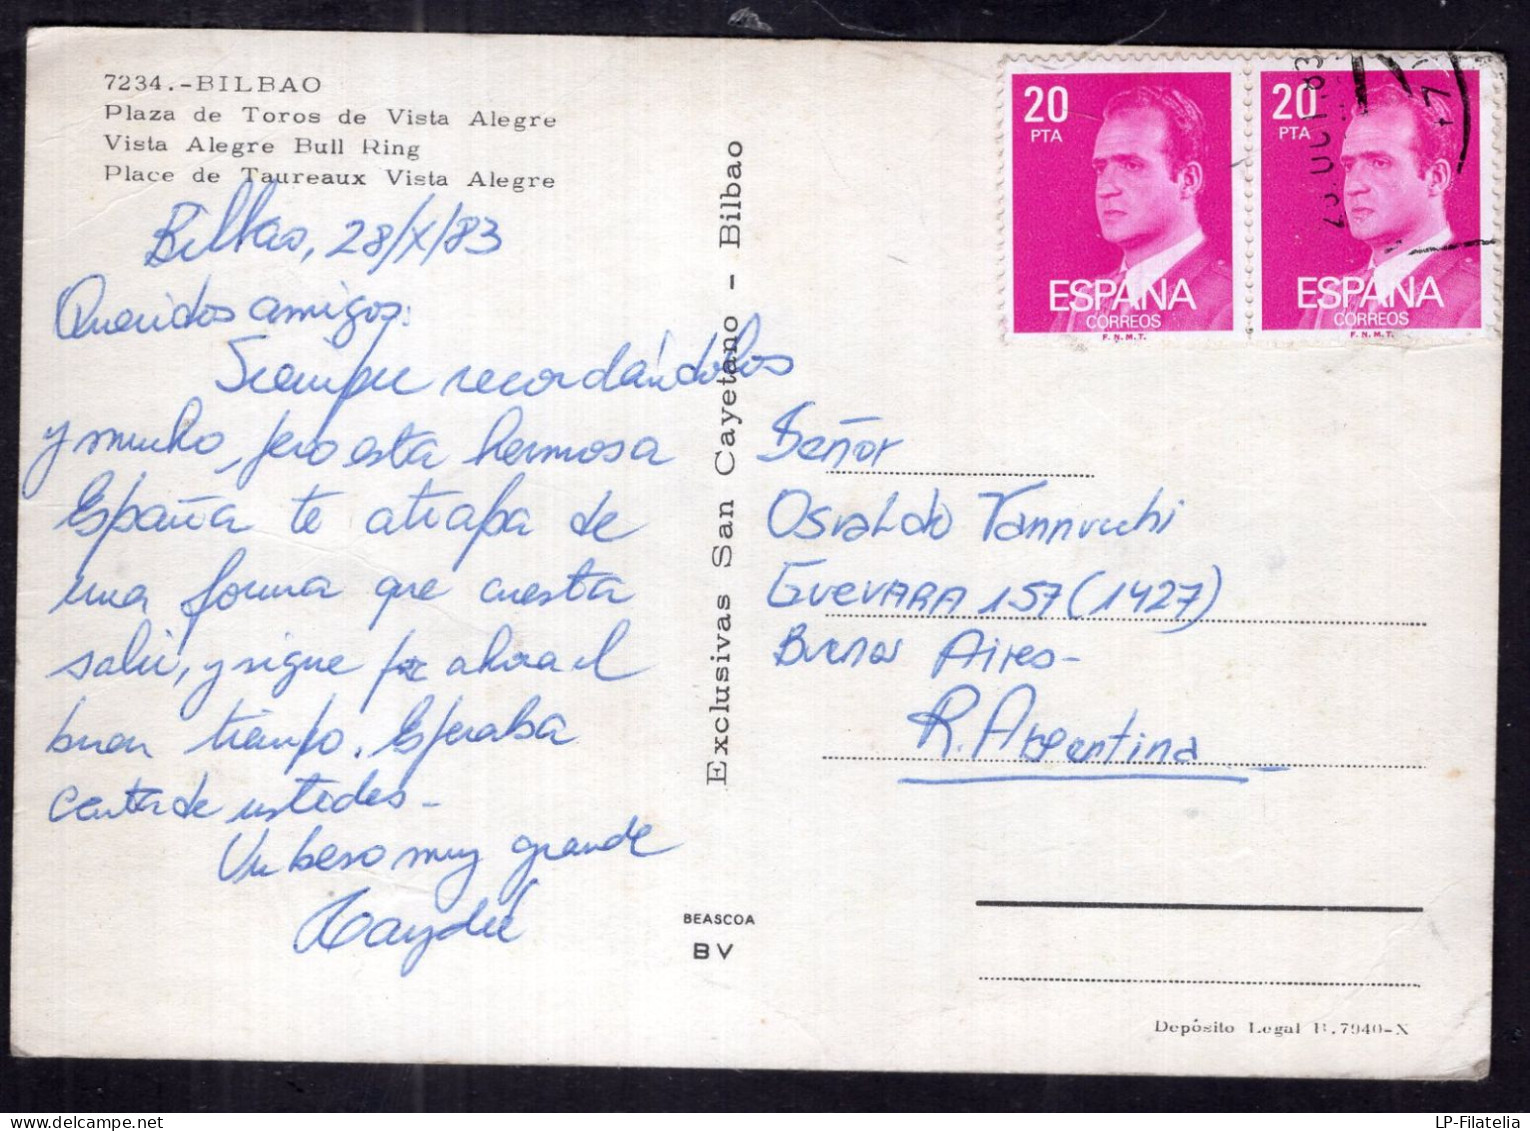 7234.-BILBAO
Plaza de Toros de Vista Alegre
Vista Alegre Bull Ring
Place de Taureaux Vista Alegre
Bilbao, 28/X/83
Queridos amigos:
Siempre recordándolos
y mucho, pero esta hermosa
España te atrapa de
una forma que cuesta
salir, y sigue por ahora el
buen tiempo. Esperaba
carta de ustedes-
Un beso muy grande
Haydeé
Exclusivas San Cayetano - Bilbao
BEASCOA
BV
20
PTA
ESPAÑA
CORREOS
F.N.M.T.
20
PTA
ESPAÑA
CORREOS
F.N.M.T.
OCT. 83
Señor
Osvaldo Vannucchi
GUEVARA 157 (1427)
Buenos Aires-
R. Argentina
Depósito Legal B.7940-X
LP-Filatelia